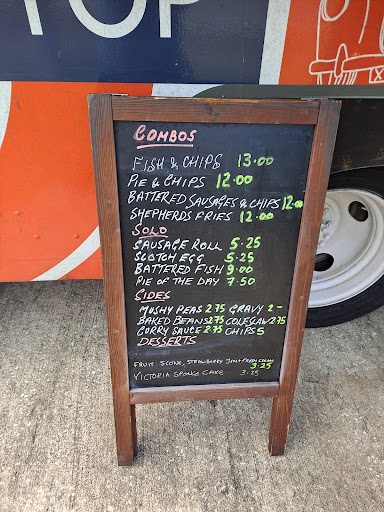 TOP
COMBOS
FISH & CHIPS 13.00
PIE & CHIPS 12.00
BATTERED SAUSAGES & CHIPS 12.00
SHEPHERDS FRIES 12.00
SOLO
SAUSAGE ROLL 5.25
SCOTCH EGG 5.25
BATTERED FISH 9.00
PIE OF THE DAY 7.50
SIDES
MUSHY PEAS 2.75 GRAVY 2-
BAKED BEANS 2.75 COLESLAW 2.75
CURRY SAUCE 2.75 CHIPS 5
DESSERTS
FRUIT SCONE, STRAWBERRY JAM + FRESH CREAM
3.25
VICTORIA SPONGE CAKE 3.25